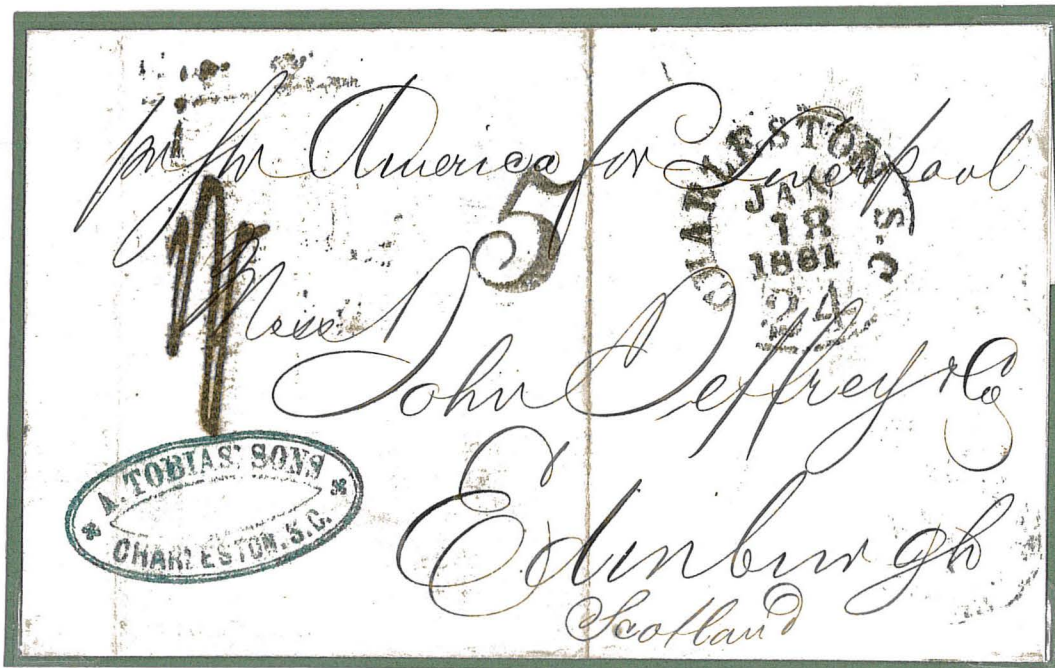 per Str America for Liverpool
5
CHARLESTON S.C.
JAN
18
1861
24
Mess
John Jeffrey & Co
Edinburgh
Scotland
A. TOBIAS' SONS
CHARLESTON. S.C.